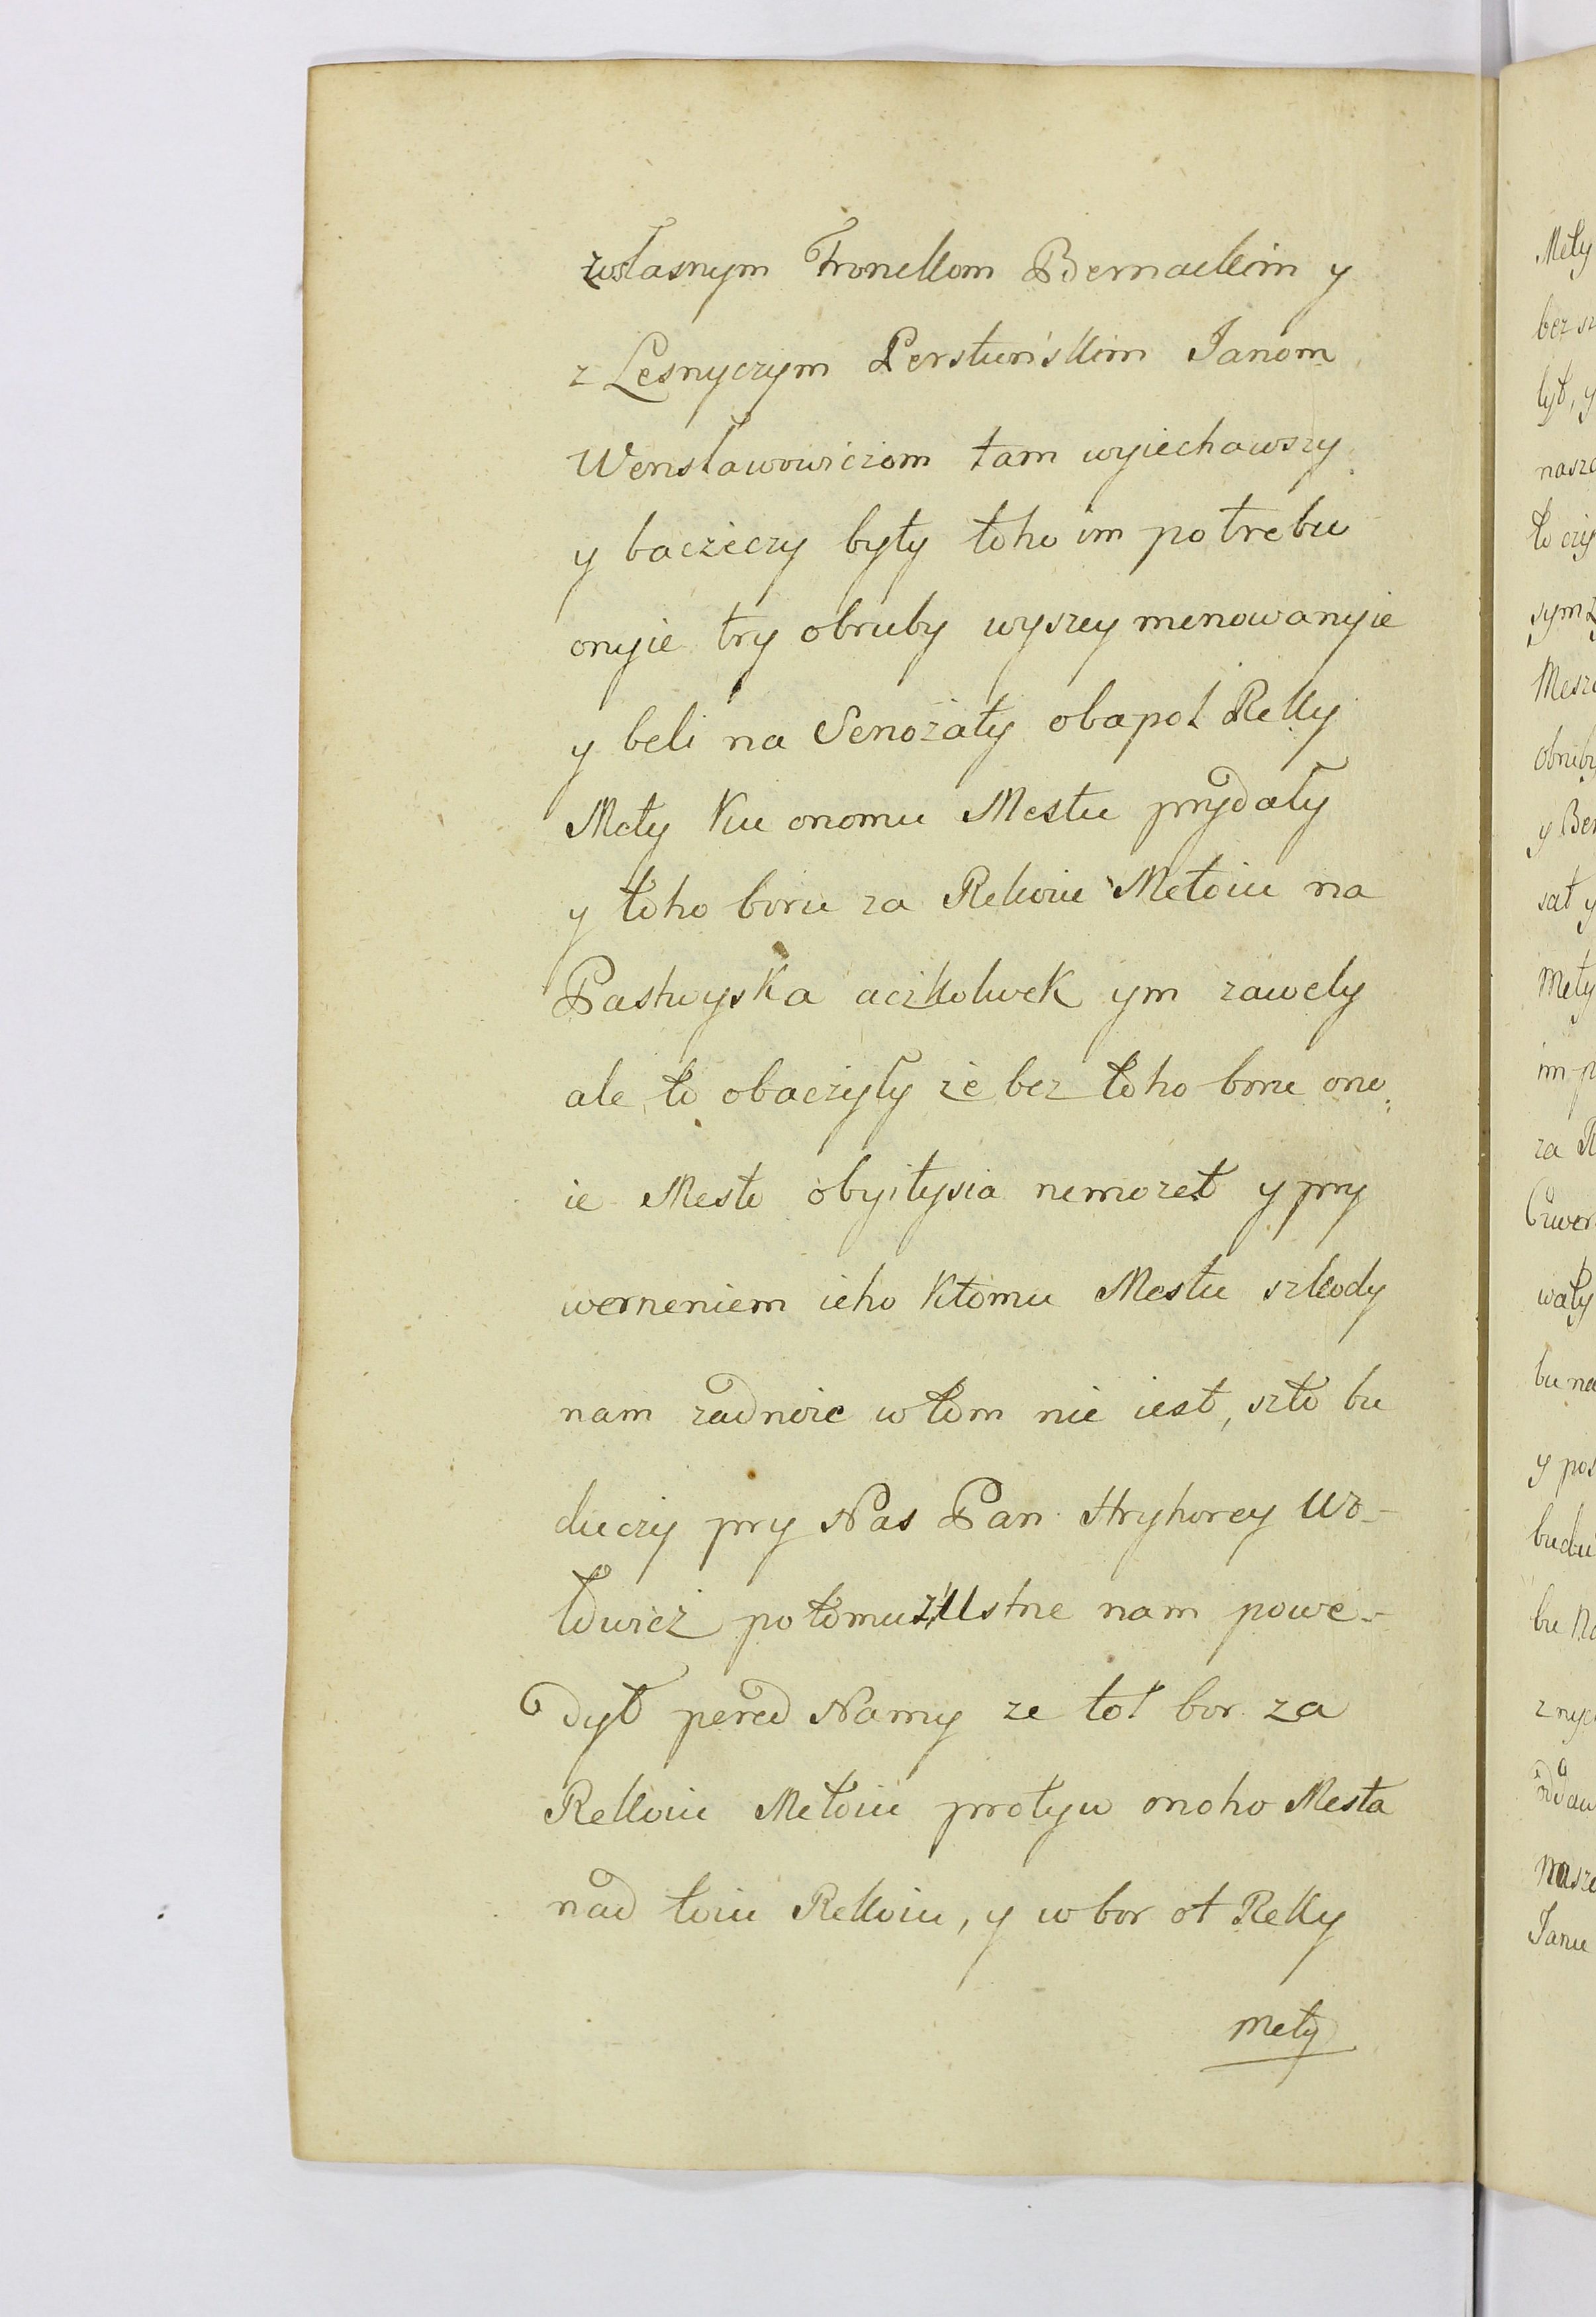 zwłasnym Fronckom Bernackim y
z Lesnyczym Perstuńskim Janom
Wensławowiczom tam wyiechawszy
y baczéczy były toho im potrebu
onyie try obruby wyszey menowanyie
y beli na Senożaty obapol Reky
Mety Ku onomu Mestu prydały
y toho boru za Rekoiu Metoiu na
Pastwyska aczkolwek ym zawely
ale to obaczyły że bez toho boru ono
ie Mesto obyitysia nemożet y pry
werneniem ieho Ktomu Mestu szkody
nam żadnoie wtom nie iest, szto bu
duczy pry Nas Pan Hryhorey Wo-
łowicz potomuż Ustne nam powe-
dył pered Namy ze tot bor za
Rekoiu Metoiu protyw onoho Mesta
nad toiu Rekoiu, y wbor ot Reky
mety
Mety
bez
lyt, y
to czy
y Ber
sat y
Mety
im p
za R
waty
bu na
y pos
budu
bu Na
Janu